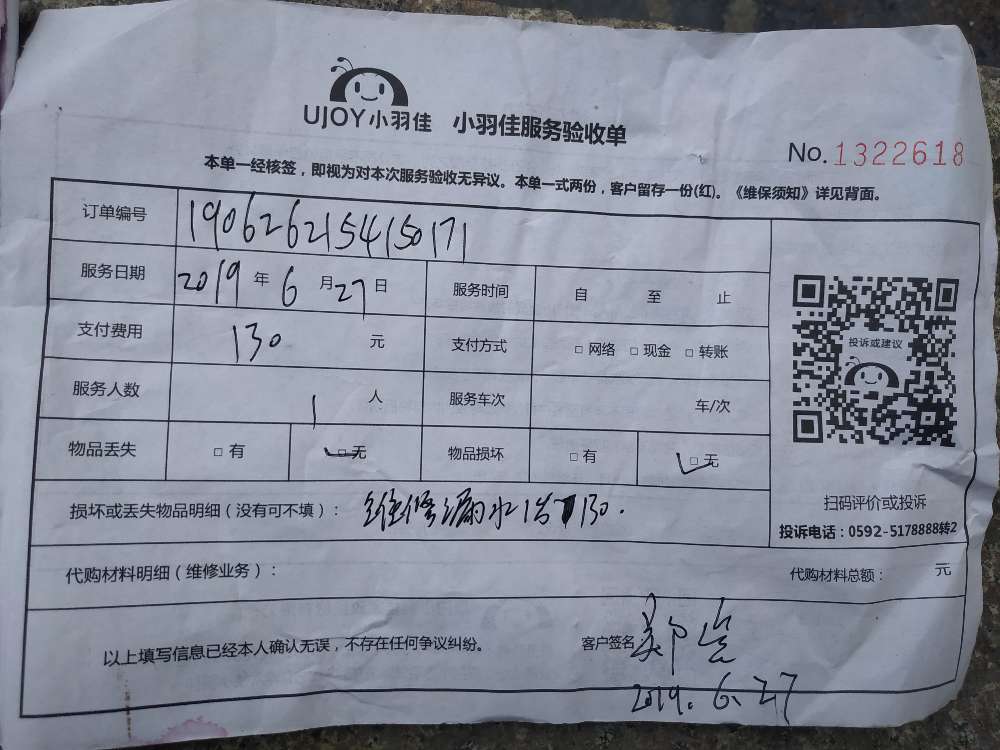 UJOY小羽佳 小羽佳服务验收单
No.1322618
本单一经核签，即视为对本次服务验收无异议。本单一式两份，客户留存一份(红)。《维保须知》详见背面。
订单编号 1906262154150171
服务日期 2019 年 6 月 27 日 服务时间 自 至 止
支付费用 130 元 支付方式 □ 网络 □ 现金 □ 转账
投诉或建议
服务人数 1 人 服务车次 车/次
物品丢失 □ 有 □ 无 物品损坏 □ 有 □ 无
扫码评价或投诉
投诉电话：0592-5178888转2
损坏或丢失物品明细（没有可不填）： 维修漏水 130.
代购材料明细（维修业务）： 代购材料总额： 元
以上填写信息已经本人确认无误，不存在任何争议纠纷。 客户签名
2019.6.27